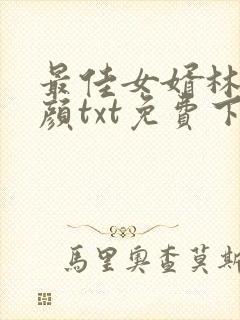 最佳女婿林
颜txt免費下
馬里奥查莫斯